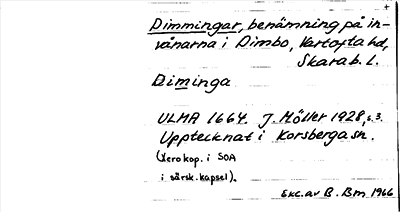 Dimmingar, benämning på in-
vånarna i Dimbo, Vartofta hd,
Skarab. l.
Diminga
ULMA 1664. J. Möller 1928, s. 3.
Upptecknat i Korsberga sn.
(Xerokop. i SOA
i särsk. kapsel).
Exc. av B. Bm 1966